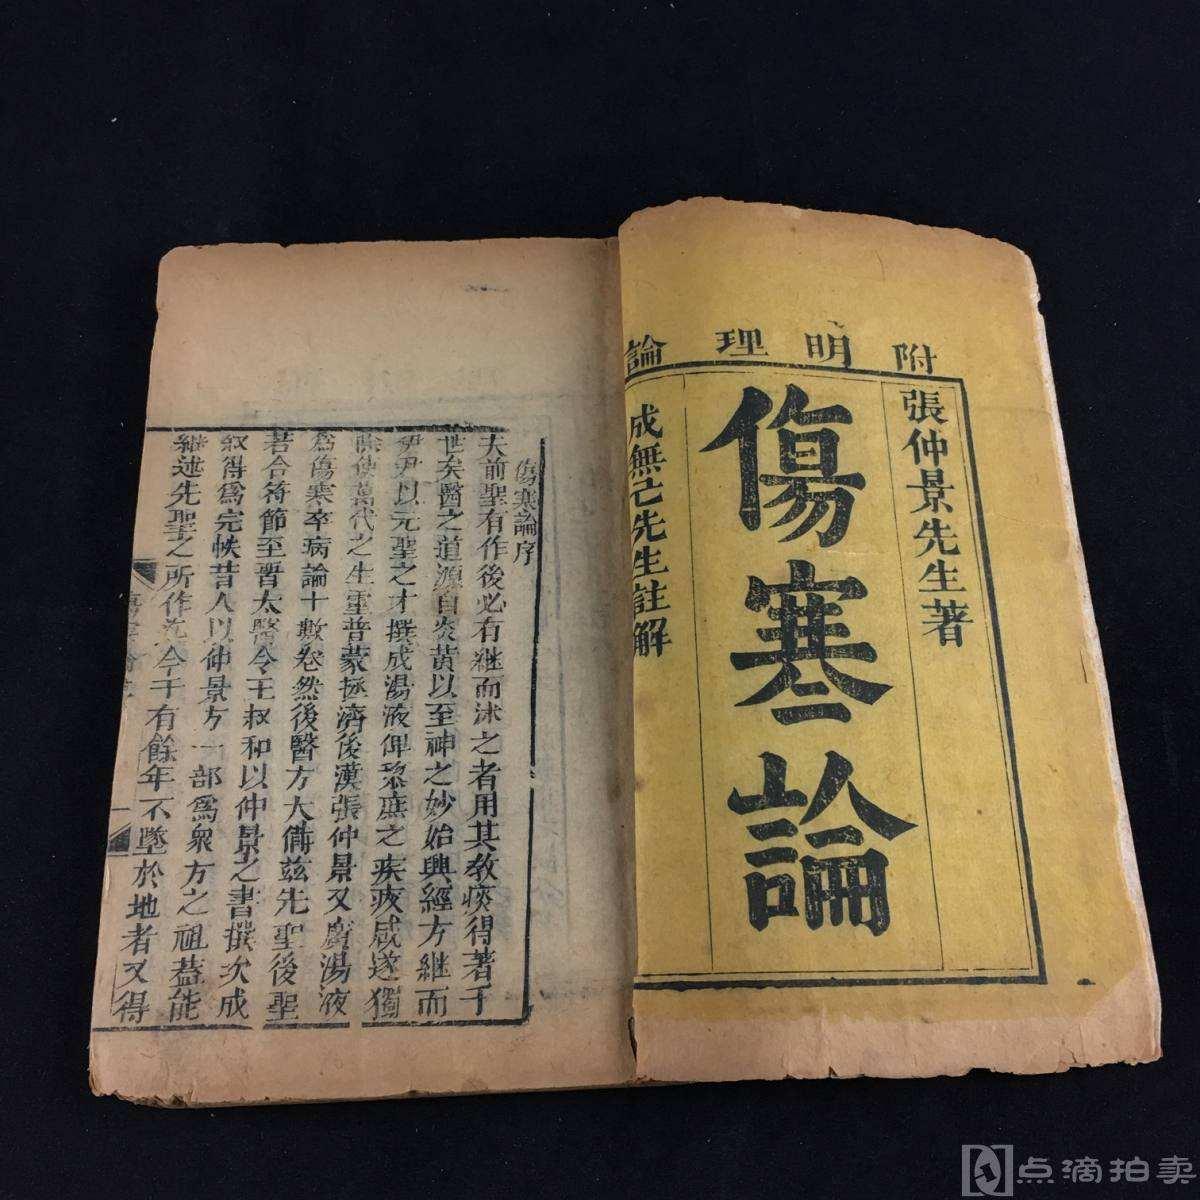 附明理論
張仲景先生著
傷寒論
成無己先生註解
傷寒論序
夫前聖有作後必有継而述之者用其教痰得著于
世矣醫之道源自炎黃以至神之妙始興經方継而
伊尹以元聖之才撰成湯液俾黎庶之疾疚咸遂蠲
除使萬代之生靈普蒙拯濟後漢張仲景又廣湯液
為傷寒卒病論十數卷然後醫方大備茲先聖後聖
若合符節至晋太醫令王叔和以仲景之書撰次成
叙得爲完帙昔人以仲景方一部爲衆方之祖蓋能
継述先聖之所作迄今千有餘年不墜於地者又得
点滴拍卖